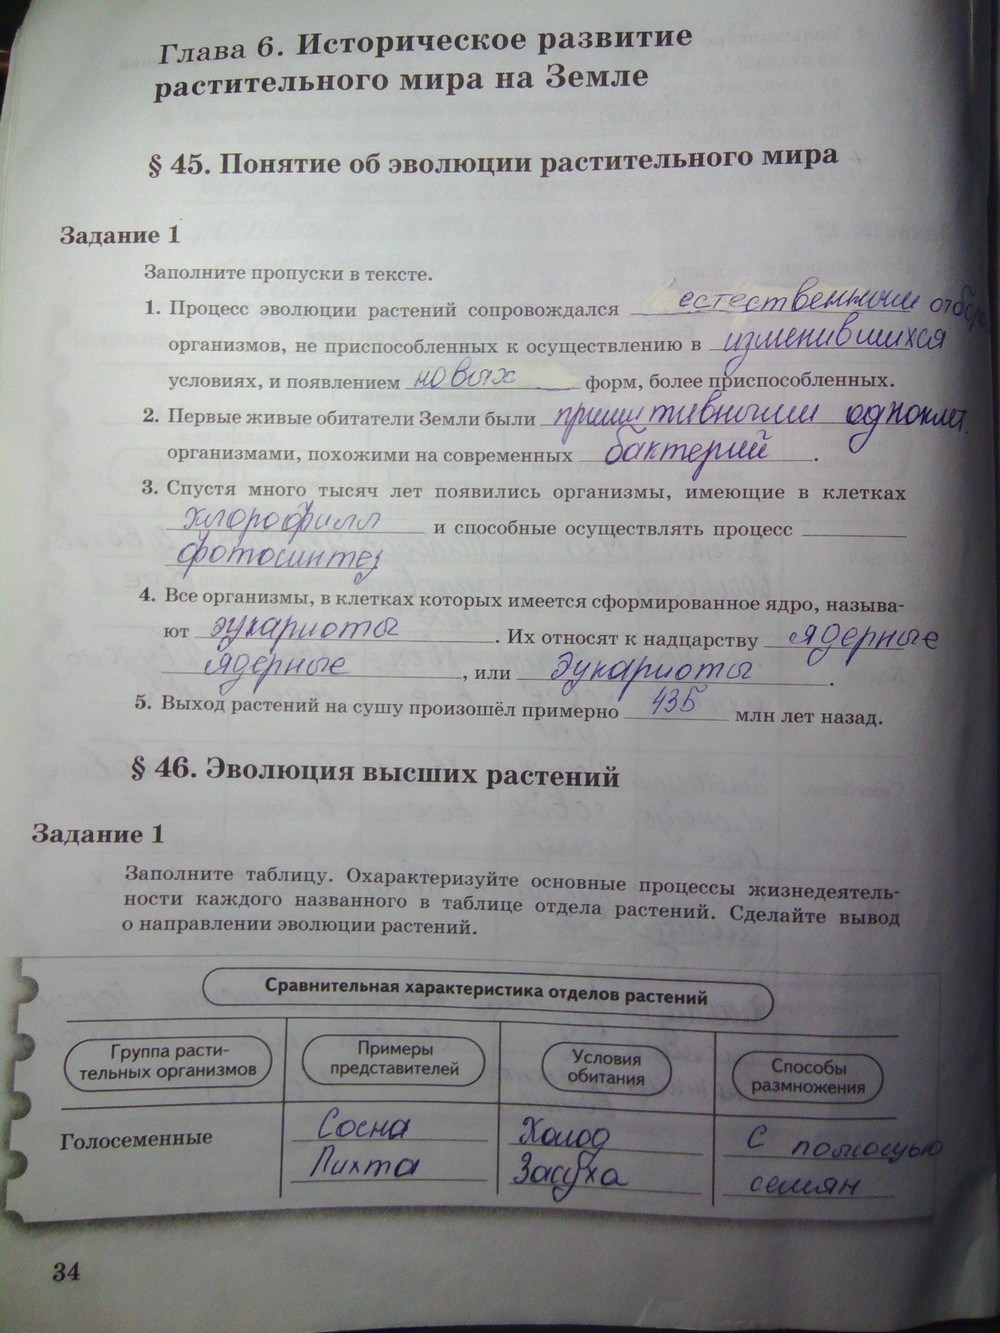 Глава 6. Историческое развитие
растительного мира на Земле
§ 45. Понятие об эволюции растительного мира
Задание 1
Заполните пропуски в тексте.
1. Процесс эволюции растений сопровождался естественным отбор
организмов, не приспособленных к осуществлению в изменившихся
условиях, и появлением новых форм, более приспособленных.
2. Первые живые обитатели Земли были примитивными одноклет.
организмами, похожими на современных бактерий.
3. Спустя много тысяч лет появились организмы, имеющие в клетках
хлорофилл и способные осуществлять процесс
фотосинтез
4. Все организмы, в клетках которых имеется сформированное ядро, называ-
ют эукариоты. Их относят к надцарству ядерные
ядерные, или Эукариоты.
5. Выход растений на сушу произошёл примерно 435 млн лет назад.
§ 46. Эволюция высших растений
Задание 1
Заполните таблицу. Охарактеризуйте основные процессы жизнедеятель-
ности каждого названного в таблице отдела растений. Сделайте вывод
о направлении эволюции растений.
Сравнительная характеристика отделов растений
Группа расти-
тельных организмов
Примеры
представителей
Условия
обитания
Способы
размножения
Голосеменные
Сосна
Пихта
Холод
Засуха
С помощью
семян
34